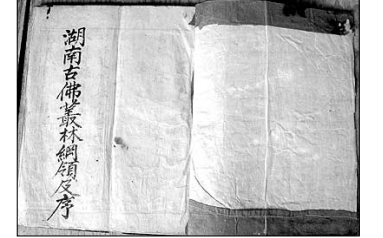 湖南古佛叢林綱領及序